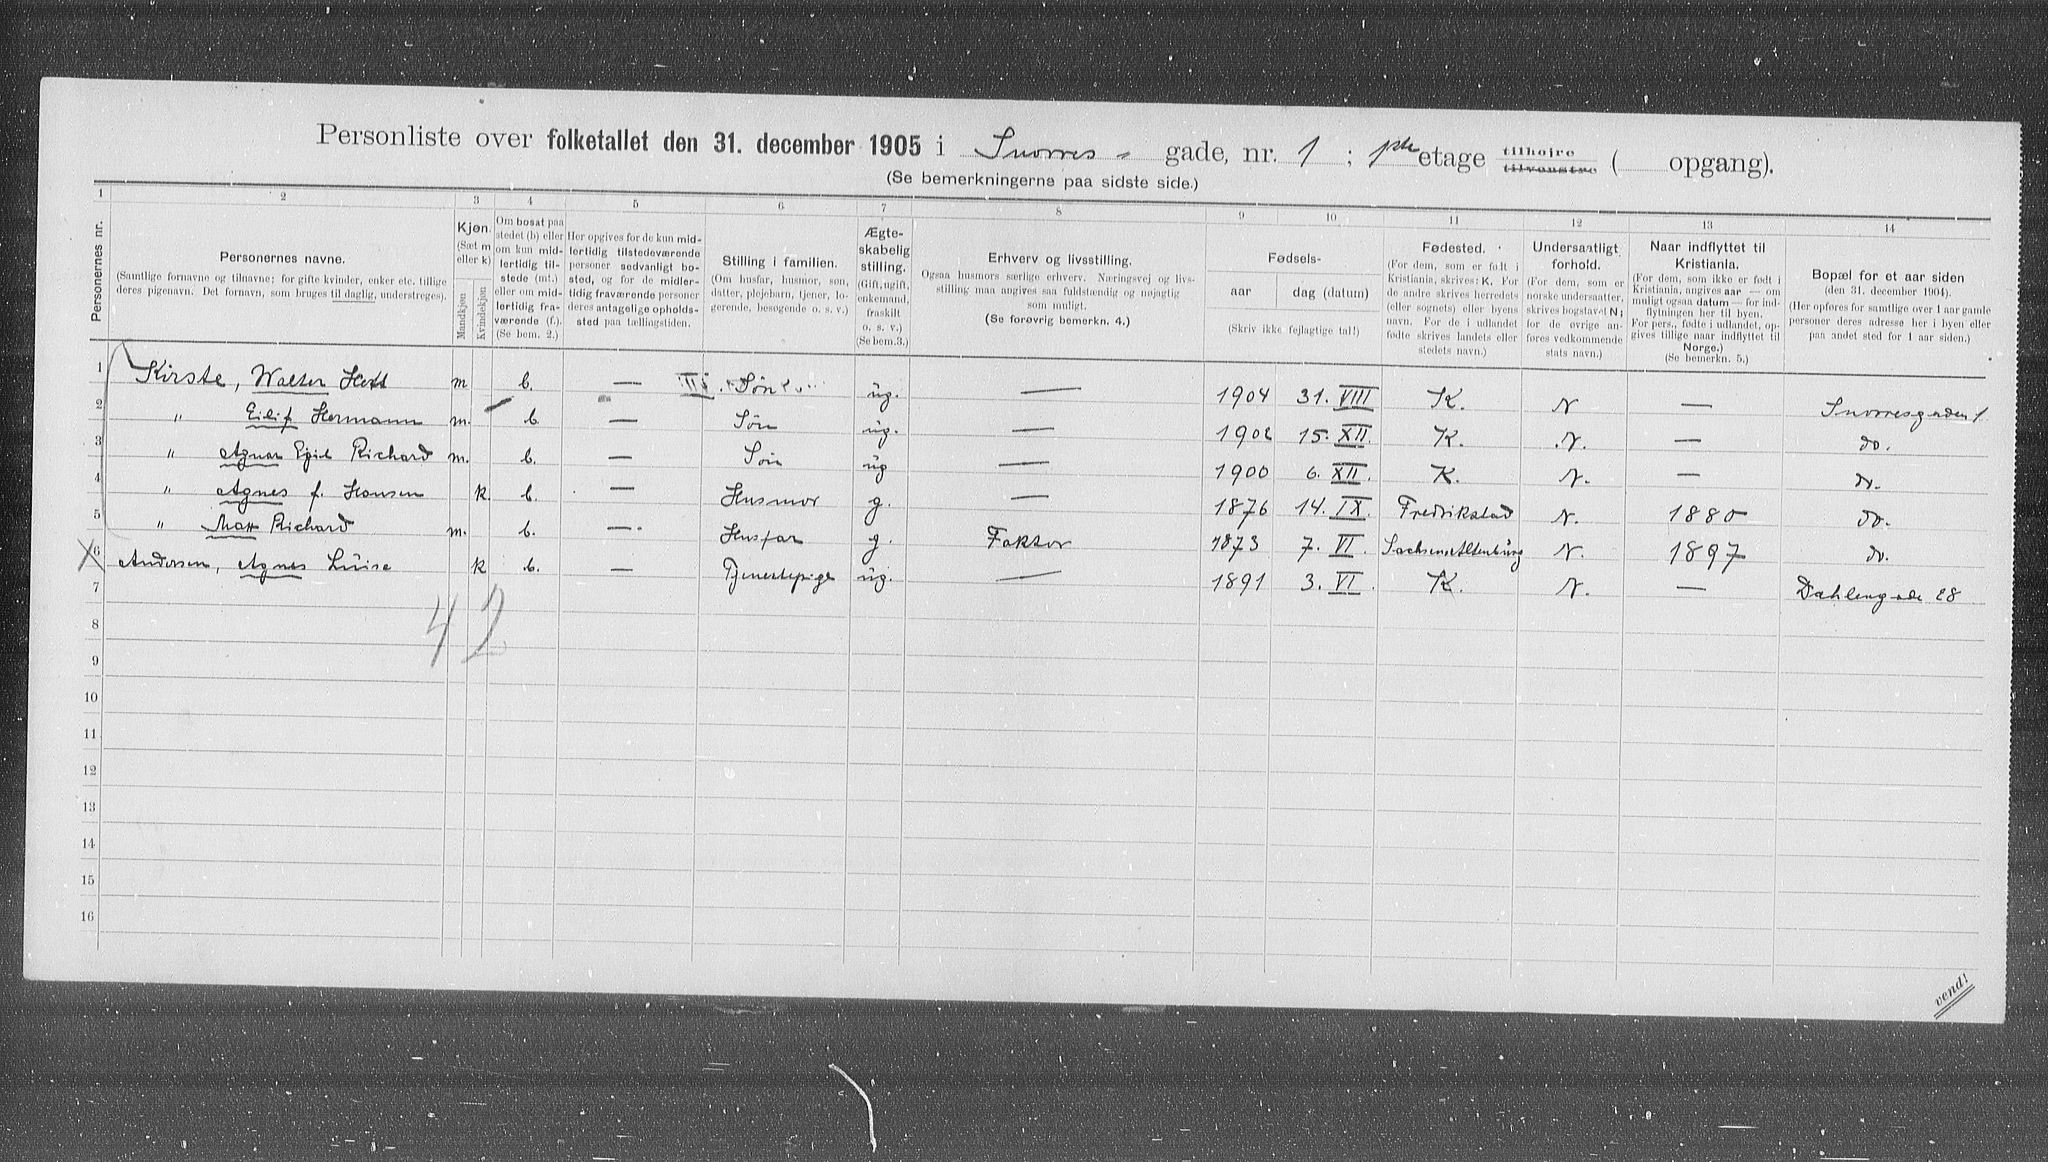 Personliste over folketallet den 31. december 1905 i Snorres gade, nr. 1 ; 1ste etage tilhøire tilvenstre ( opgang).
(Se bemerkningerne paa sidste side.)
1 2 3 4 5 6 7 8 9 10 11 12 13 14
Personernes nr.
Personernes navne.
(Samtlige fornavne og tilnavne; for gifte kvinder, enker etc. tillige
deres pigenavn. Det fornavn, som bruges til daglig, understreges).
Kjøn.
(Sæt m
eller k)
Mandkjøn
Kvindekjøn
Om bosat paa
stedet (b) eller
om kun mid-
lertidig til-
stede (mt.)
eller om mid-
lertidig fra-
værende (f.).
(Se bem. 2.)
Her opgives for de kun mid-
lertidig tilstedeværende
personer sedvanligt bo-
sted, og for de midler-
tidig fraværende personer
deres antagelige opholds-
sted paa tællingstiden.
Stilling i familien.
(Om husfar, husmor, søn,
datter, plejebarn, tjener, lo-
gerende, besøgende o. s. v.)
Ægte-
skabelig
stilling.
(Gift, ugift,
enkemand,
fraskilt
o. s. v.)
(Se bem.3.)
Erhverv og livsstilling.
Ogsaa husmors særlige erhverv. Næringsvej og livs-
stilling maa angives saa fuldstændig og nøjagtig
som muligt.
(Se forøvrig bemerkn. 4.)
Fødsels-
aar
dag (datum)
(Skriv ikke fejlagtige tal!)
Fødested.
(For dem, som er født i
Kristiania, skrives: K. For
de andre skrives herredets
(eller sognets) eller byens
navn. For de i udlandet
fødte skrives landets eller
stedets navn.)
Undersaatligt
forhold.
(For dem, som er
norske undersaatter,
skrives bogstavet N;
for de øvrige an-
føres vedkommende
stats navn.)
Naar indflyttet til
Kristiania.
(For dem, som ikke er født i
Kristiania, angives aar — om
muligt ogsaa datum — for ind-
flytningen her til byen.
For pers., fødte i udlandet, op-
gives tillige naar indflyttet til
Norge.)
(Se bemerkn. 5.)
Bopæl for et aar siden
(den 31. december 1904).
(Her opføres for samtlige over 1 aar gamle
personer deres adresse her i byen eller
paa andet sted for 1 aar siden.)
1 Kirste, Walter m b. — Søn ug. — 1904 31. VIII K. N — Snorresgaden 1.
2 " Eilif Hermann m. b — Søn ug. — 1902 15. XII. K. N. — do.
3 " Agnar Egil Richard m. b. — Søn ug — 1900 6. XII. K. N. — do.
4 " Agnes f. Hansen k. b. — Husmor g. — 1876 14. IX. Fredrikstad N. 1880 do.
5 " Max Richard m. b. — Husfar g. Faktor 1873 7. VI. Sachsen Altenburg N. 1897 do.
6 Andersen, Agnes Luise k b. — Tjenestepige ug. — 1891 3. VI. K. N. — Dahlensgade 28
7
42
8
9
10
11
12
13
14
15
16
vend!